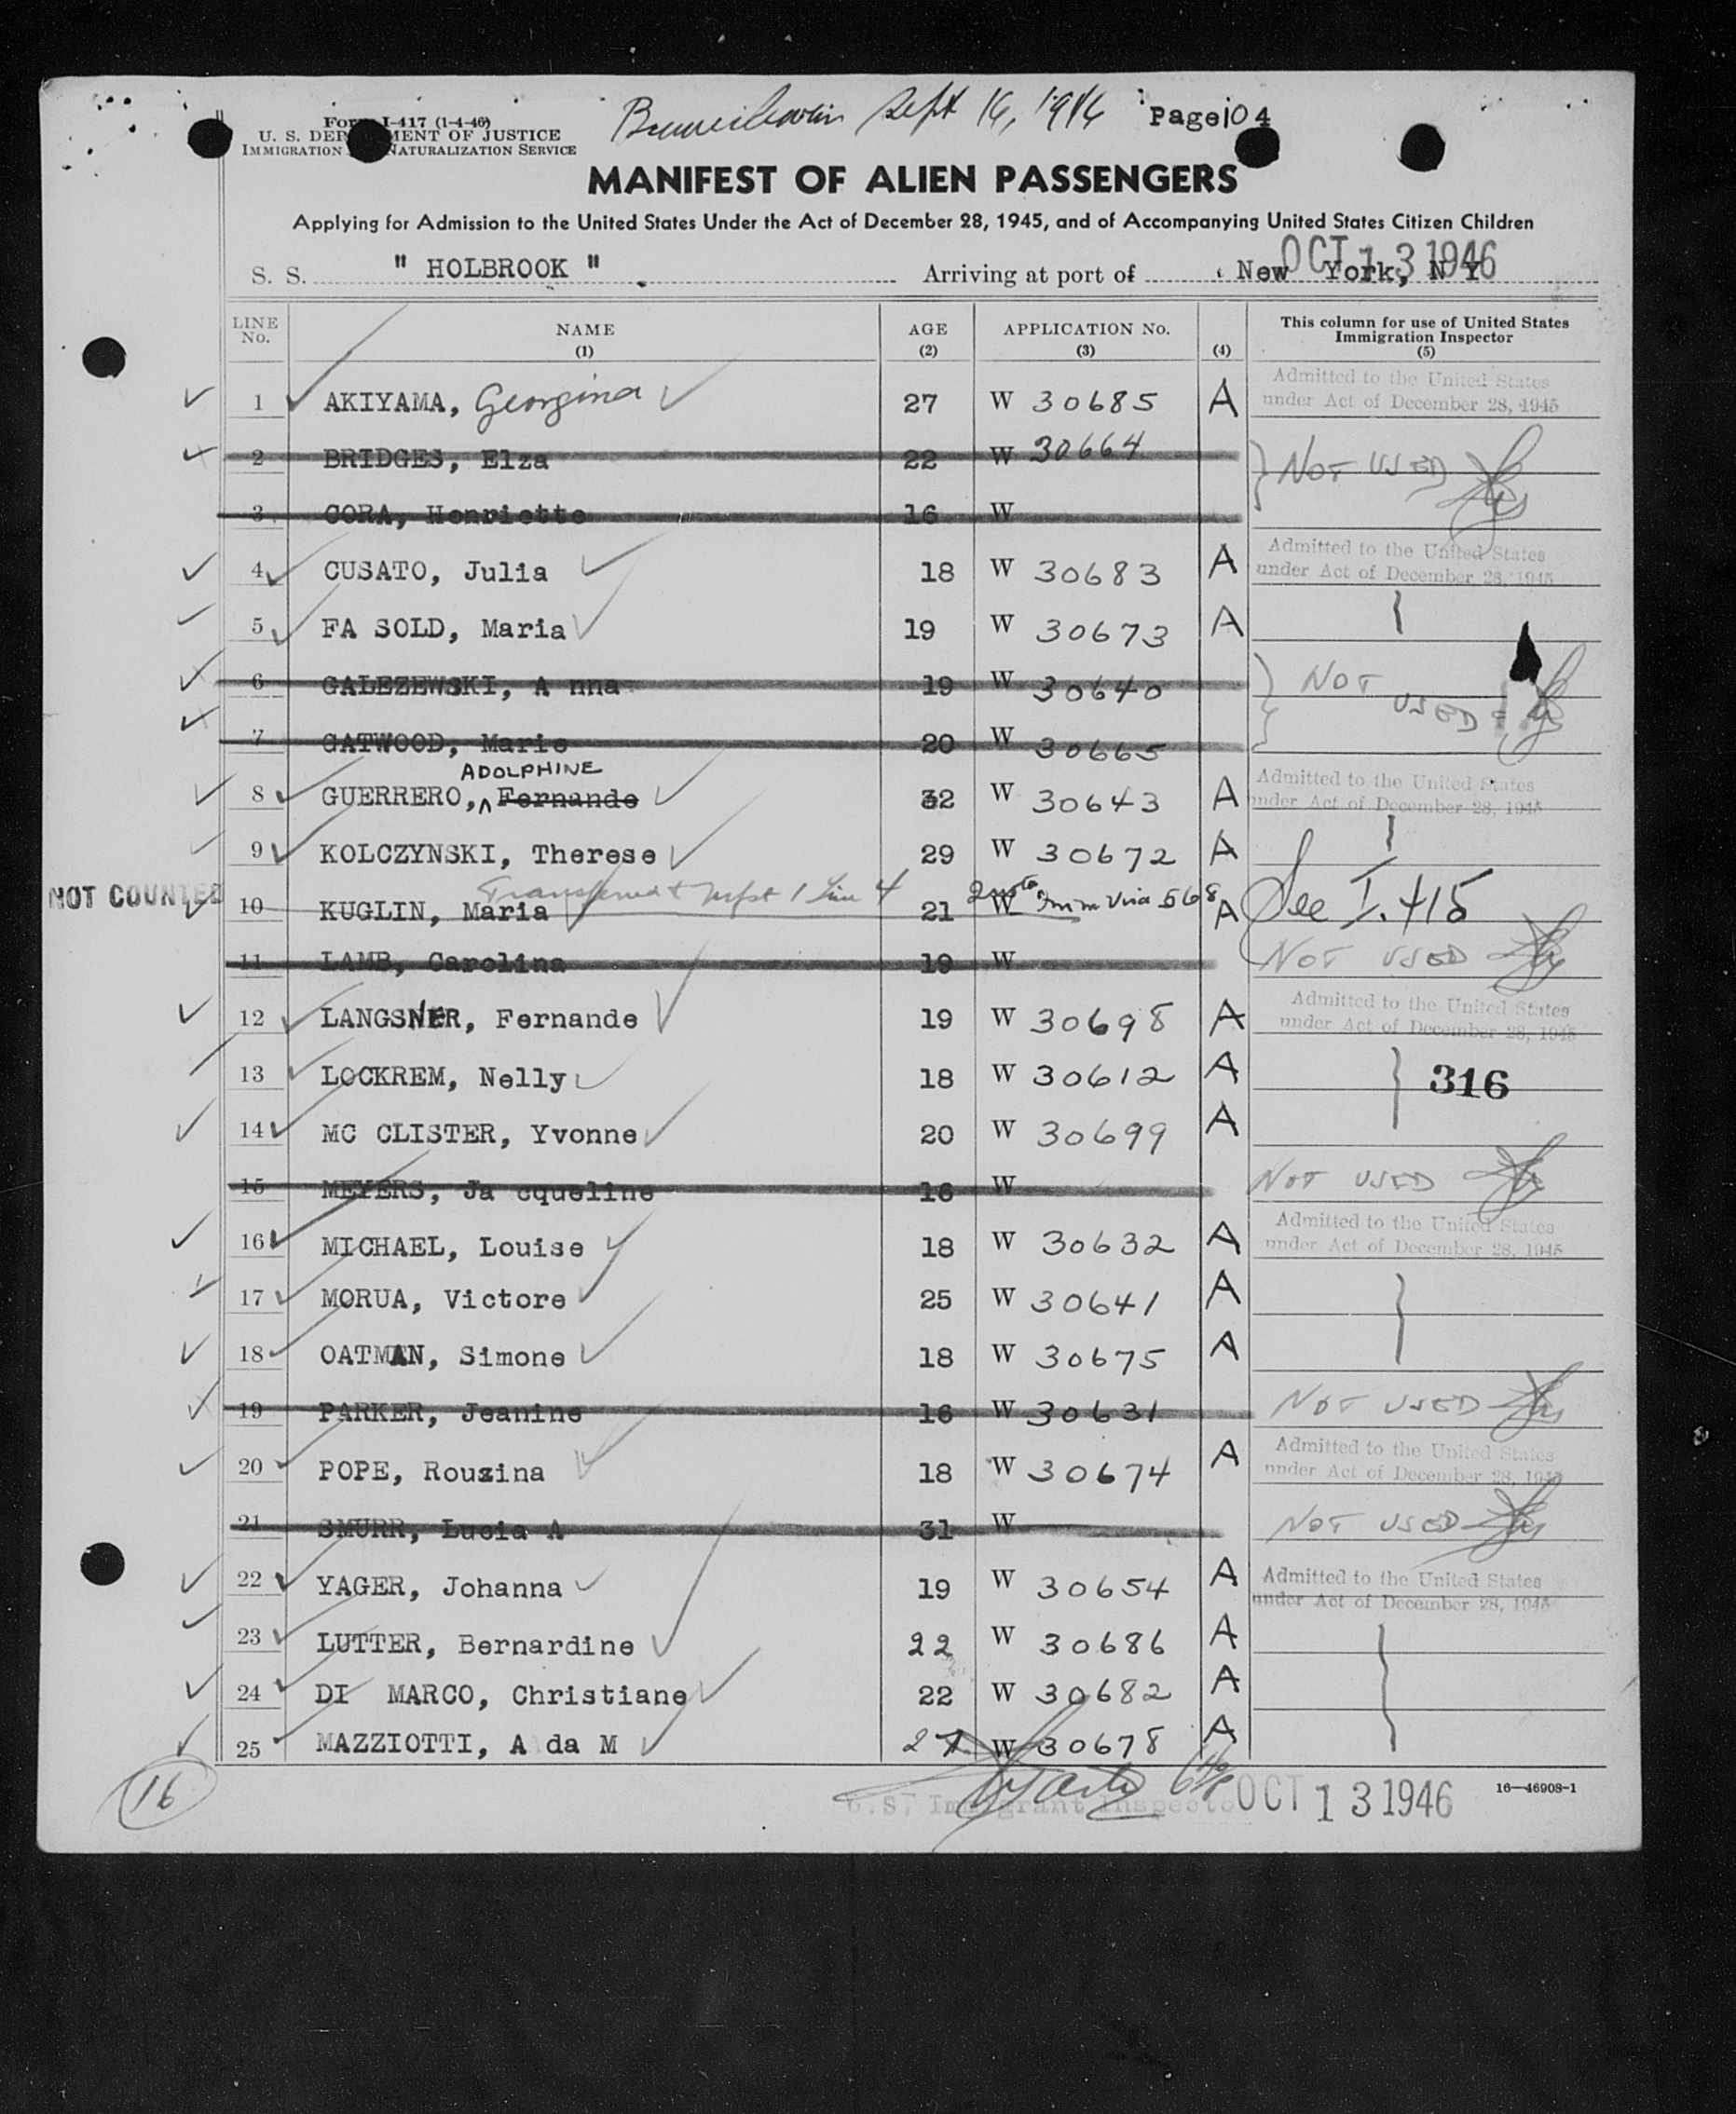 Form I-417 (1-4-46)
U. S. DEPARTMENT OF JUSTICE
IMMIGRATION NATURALIZATION SERVICE
Sept 16, 1946 Page 104
MANIFEST OF ALIEN PASSENGERS
Applying for Admission to the United States Under the Act of December 28, 1945, and of Accompanying United States Citizen Children
OCT 13 1946
S. S. " HOLBROOK " Arriving at port of New York, N Y
LINE No. NAME (1) AGE (2) APPLICATION No. (3) (4) This column for use of United States Immigration Inspector (5)
1 AKIYAMA, Georgina 27 W 30685 A Admitted to the United States under Act of December 28, 1945
2 BRIDGES, Elza 22 W 30664 NOT USED
3 CORA, Henriette 16 W
4 CUSATO, Julia 18 W 30683 A Admitted to the United States under Act of December 28, 1945
5 FA SOLD, Maria 19 W 30673 A
6 GALEZEWSKI, A nna 19 W 30640 NOT USED
7 GATWOOD, Marie 20 W 30665
ADOLPHINE
8 GUERRERO, Fernande 32 W 30643 A Admitted to the United States under Act of December 28, 1945
9 KOLCZYNSKI, Therese 29 W 30672 A
Transferred to Mfst 1 Line 4
NOT COUNTED 10 KUGLIN, Maria 21 W Quota Imm Visa 568 A See I. 415
11 LAMB, Carolina 19 W NOT USED
12 LANGSNER, Fernande 19 W 30698 A Admitted to the United States under Act of December 28, 1945
13 LOCKREM, Nelly 18 W 30612 A 316
14 MC CLISTER, Yvonne 20 W 30699 A
15 MEYERS, Ja cqueline 16 W NOT USED
16 MICHAEL, Louise 18 W 30632 A Admitted to the United States under Act of December 28, 1945
17 MORUA, Victore 25 W 30641 A
18 OATMAN, Simone 18 W 30675 A
19 PARKER, Jeanine 16 W 30631 NOT USED
20 POPE, Rouzina 18 W 30674 A Admitted to the United States under Act of December 28, 1945
21 SMURR, Lucia A 31 W NOT USED
22 YAGER, Johanna 19 W 30654 A Admitted to the United States under Act of December 28, 1945
23 LUTTER, Bernardine 22 W 30686 A
24 DI MARCO, Christiane 22 W 30682 A
25 MAZZIOTTI, A da M 27 W 30678 A
16 U.S. Immigrant Inspector OCT 13 1946 16—46908-1